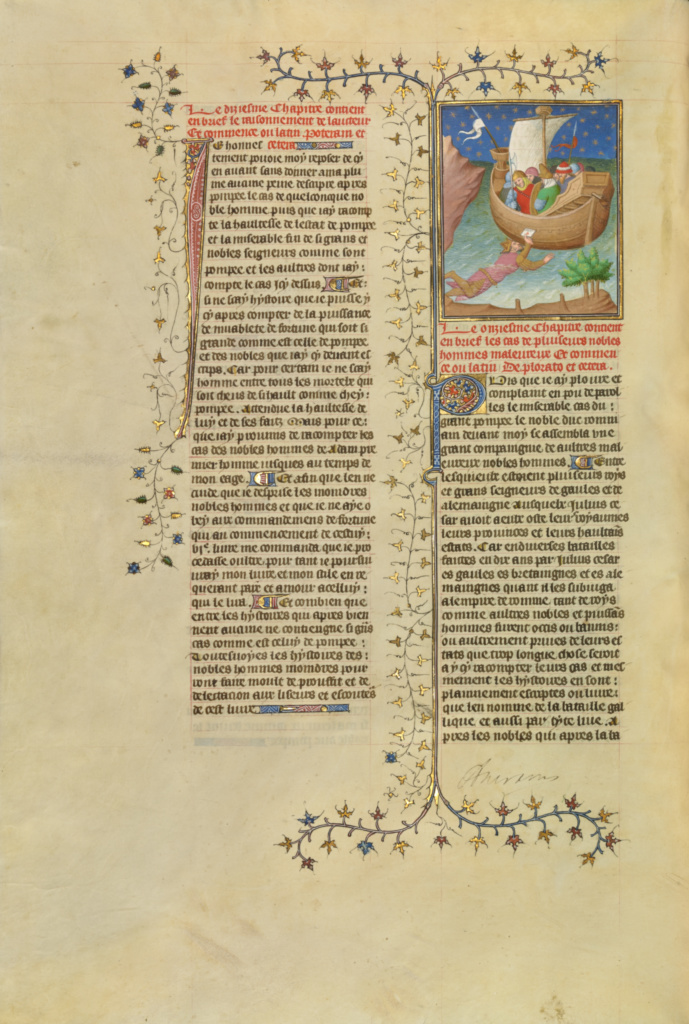 Le diziesme Chapitre contient
en brief le raisonnement de lauteur
Et commence ou latin Poteram et
cetera
Ehonnes
tement pouoie moy reposer de cy
en auant sans donner a ma plu
me aucune peine descripre apres
pompee le cas de quelconque no
ble homme puis que iay racomp
te la haultesse de lestat de pompee
et la miserable fin de si grans et
nobles seigneurs comme sont
pompee et les aultres dont iay
compte le cas icy dessus Et
si ne scay hystoire que ie puisse y
cy apres compter de la puissance
de muablete de fortune qui soit si
grande comme est celle de pompee
et des nobles que iay cy deuant es
crips. Car pour certain ie ne scay
homme entre tous les mortelz qui
soit cheus de si hault comme chey
pompee. Attendue la haultesse de
luy et de ses faitz Mais pour ce
que iay promis de racompter les
cas des nobles hommes de Adam pre
mier homme iusques au temps de
mon eage. Et afin que len ne
cuide que ie desprise les moindres
nobles hommes et que ie ne aye o
bey aux commandemens de fortune
qui au commencement de cestuy
vie liure me commanda que ie pro
cedasse oultre pour tant ie poursui
uray mon liure et mon stile en re
querant paix et amour a celluy
qui le lira. Et combien que
entre les hystoires qui apres vien
nent aucune ne contiengne si grans
cas comme est celuy de pompee
Toutesuoyes les hystoires des
nobles hommes moindres pour
ront faire moult de prouffit et de
delectation aux liseurs et escouteurs
de cest liure.
Le onziesme Chapitre contient
en brief les cas de pluiseurs nobles
hommes maleureux Et commen
ce ou latin De plorato et cetera.
Puis que ie ay ploure et
complaint en pou de parol
les le miserable cas du
grant pompee le noble duc rom
ain deuant moy se assembla vne
grant compaignie de aultres mal
eureux nobles hommes. Entre
lesquielz estoient pluiseurs roys
et grans seigneurs de gaules et de
alemaigne ausquelz Julius ce
sar auoit a eulx oste leurs royaumes
leurs prouinces et leurs haultains
estats. Car en diuerses batailles
faictes en dix ans par Julius cesar
es gaules es bretaingnes et es ale
maingnes quant il les subiuga
a lempire de romme, tant de roys
comme aultres nobles et puissans
hommes furent occis ou bannis
ou aultrement priuez de leurs es
tats que trop longue chose seroit
a y cy racompter leurs cas et mes
mement les hystoires en sont
plainnement escriptes ou liure
que len nomme de la bataille gal
lique, et aussi par tyte liue. A
pres les nobles qui apres la ba